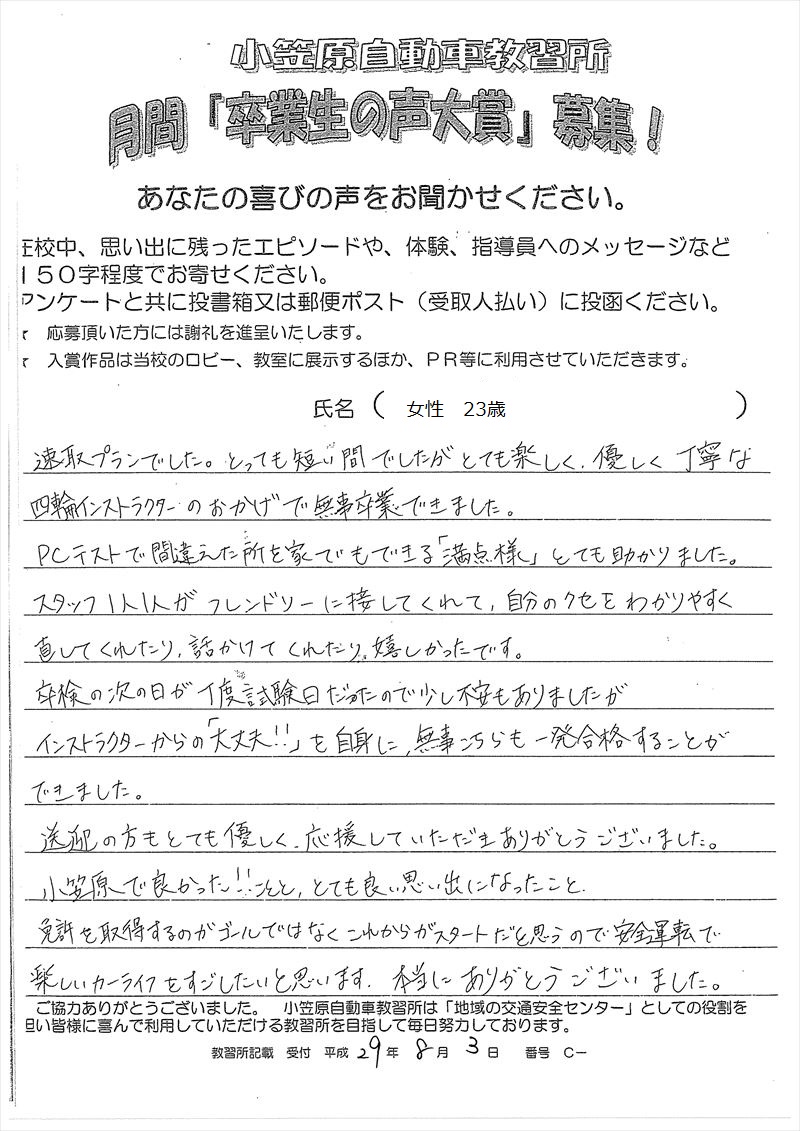 小笠原自動車教習所
月間「卒業生の声大賞」募集！
あなたの喜びの声をお聞かせください。
在校中、思い出に残ったエピソードや、体験、指導員へのメッセージなど
150字程度でお寄せください。
アンケートと共に投書箱又は郵便ポスト（受取人払い）に投函ください。
★ 応募頂いた方には謝礼を進呈いたします。
★ 入賞作品は当校のロビー、教室に展示するほか、PR等に利用させていただきます。
氏名（ 女性 23歳 ）
速取プランでした。とっても短い間でしたがとても楽しく、優しく丁寧な
四輪インストラクターのおかげで無事卒業できました。
PCテストで間違えた所を家でもできる「満点様」とても助かりました。
スタッフ1人1人がフレンドリーに接してくれて、自分のクセをわかりやすく
直してくれたり、話かけてくれたり。嬉しかったです。
卒検の次の日が 試験日だったので少し不安もありましたが
インストラクターからの「大丈夫!!」を自身に、無事こちらも一発合格することが
できました。
送迎の方もとても優しく、応援していただきありがとうございました。
小笠原で良かった!!こと、とても良い思い出になったこと、
免許を取得するのがゴールではなくこれからがスタートだと思うので安全運転で
楽しいカーライフをすごしたいと思います。本当にありがとうございました。
ご協力ありがとうございました。 小笠原自動車教習所は「地域の交通安全センター」としての役割を
担い皆様に喜んで利用していただける教習所を目指して毎日努力しております。
教習所記載 受付 平成 29年 8月 3日 番号 C－